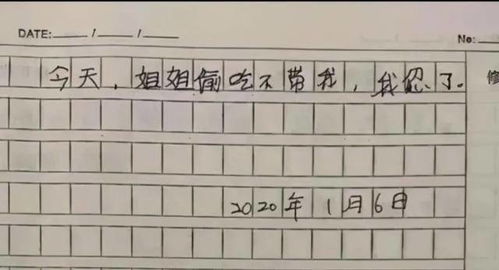 DATE: ____/____/____
No:
今天，姐姐偷吃不带我，我忍了。
修
2020年1月6日